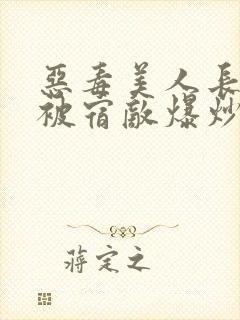 惡毒美人長
被宿敵爆炒
蔣定之